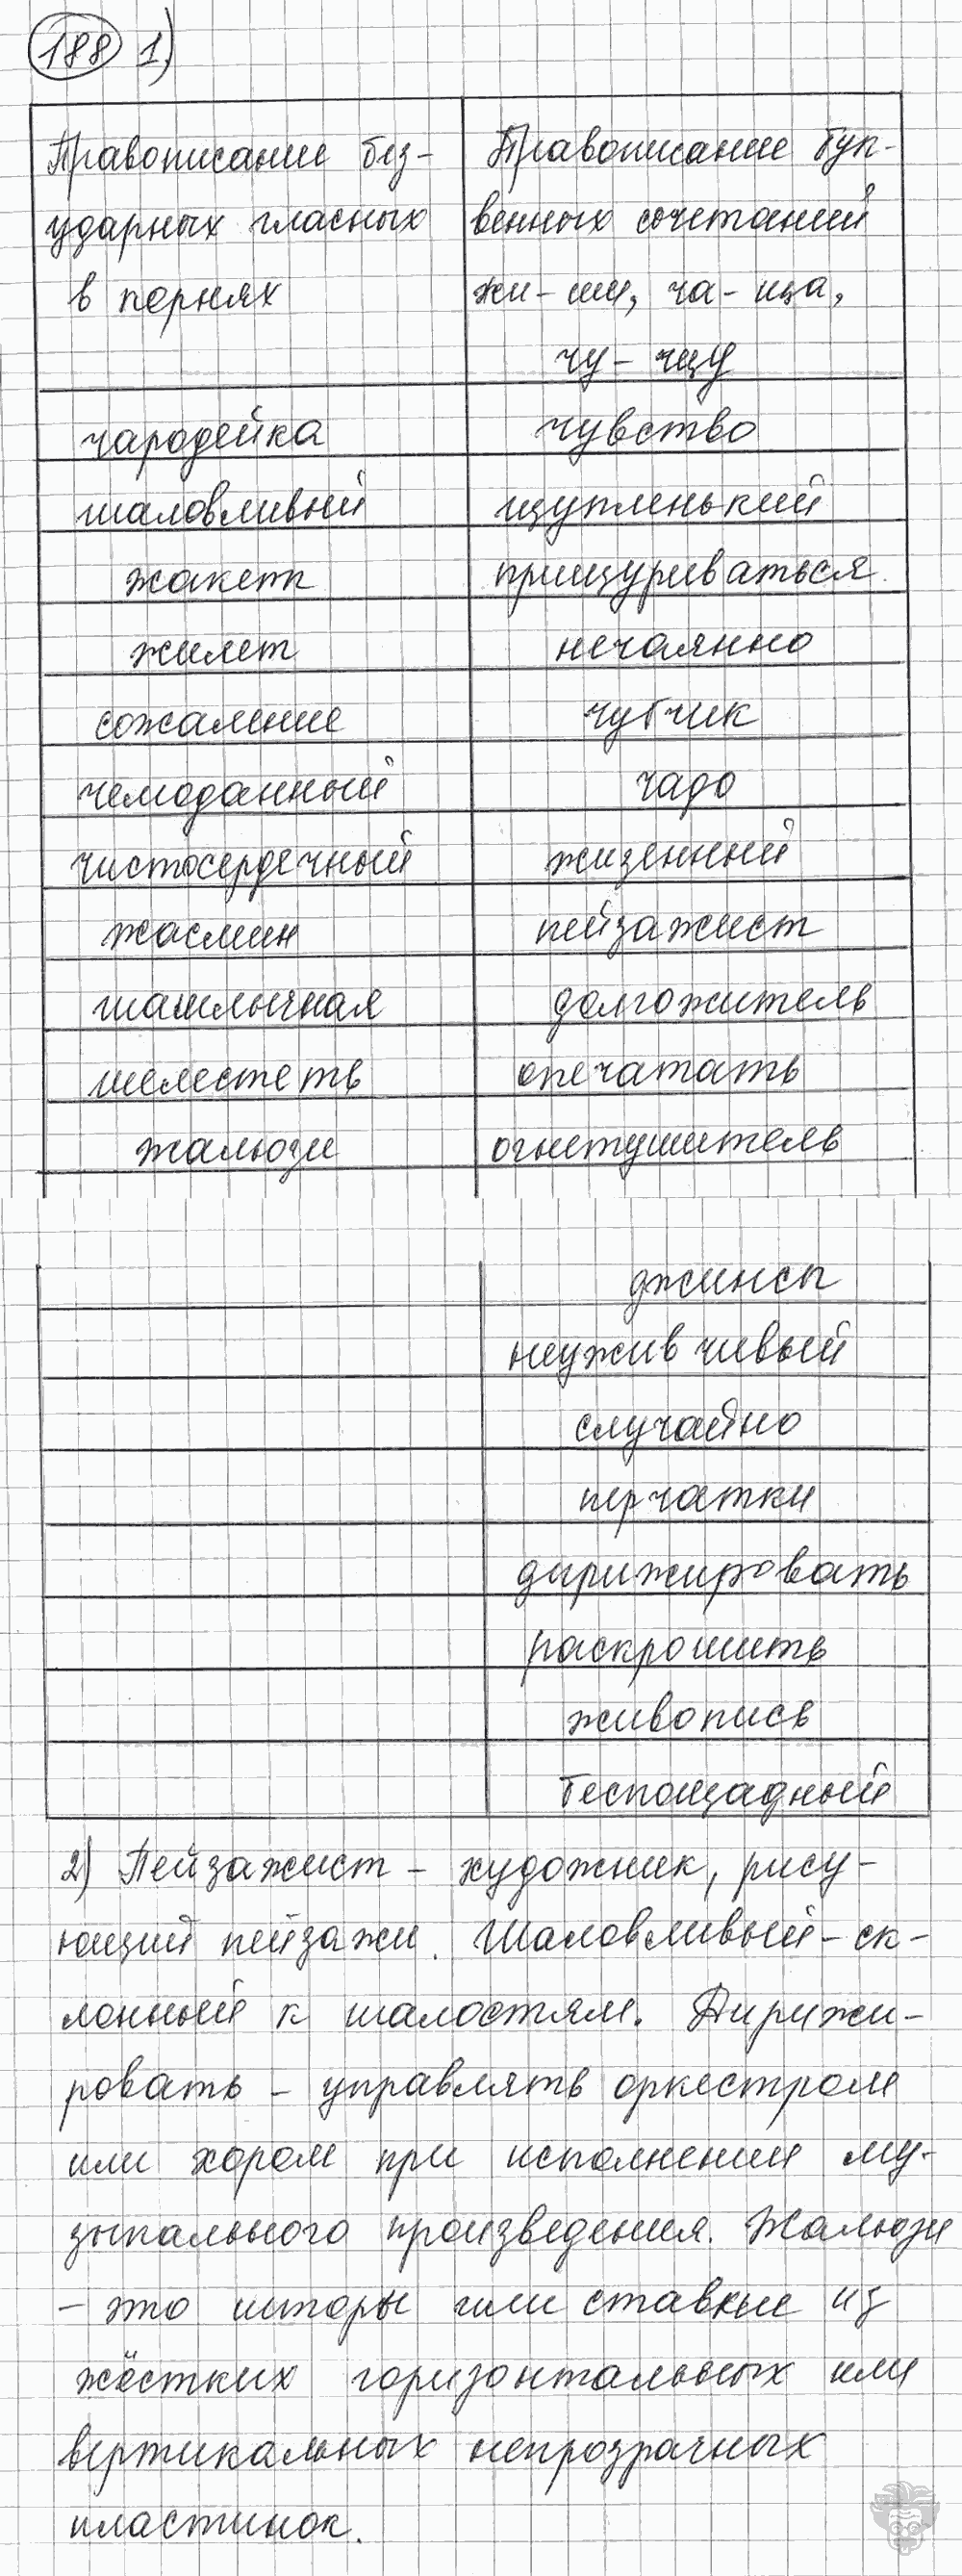 188 1)
Правописание без- Правописание бук-
ударных гласных венных сочетаний
в корнях жи-ши, ча-ща,
чу-щу
чародейка чувство
шаловливый щупленький
жакет прищуриваться
жилет нечаянно
сожаление чубчик
чемоданный чадо
чистосердечный жизненный
жасмин пейзажист
шашлычная долгожитель
шелестеть опечатать
жалюзи огнетушитель
джинсы
неуживчивый
случайно
перчатки
дирижировать
раскрошить
живопись
беспощадный
2) Пейзажист - художник, рису-
ющий пейзажи. Шаловливый - ск-
лонный к шалостям. Дирижи-
ровать - управлять оркестром
или хором при исполнении му-
зыкального произведения. Жалюзи
- это шторы или ставни из
жёстких горизонтальных или
вертикальных непрозрачных
пластинок.